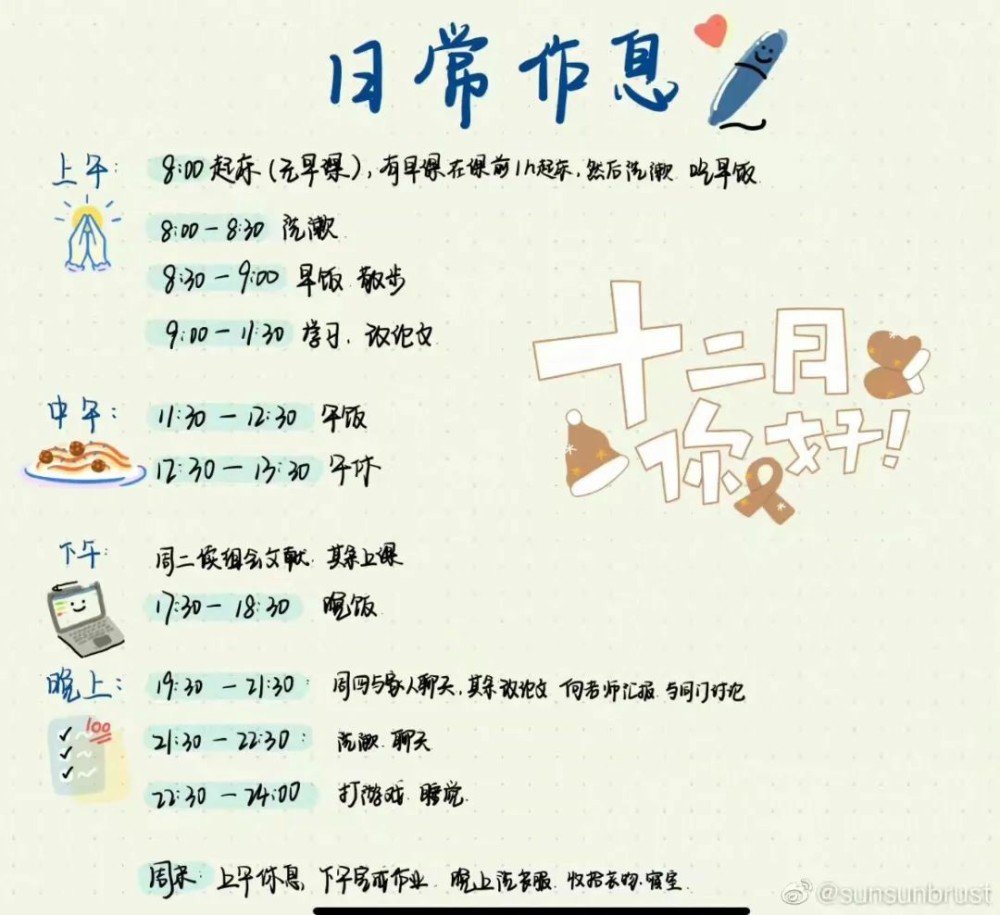 日常作息
上午:
8:00 起床(无早课),有早课在课前1h起床,然后洗漱 吃早饭
8:00-8:30 洗漱
8:30-9:00 早饭 散步
9:00-11:30 学习、改论文
十二月
你好!
中午:
11:30-12:30 午饭
12:30-13:30 午休
下午:
周二读组会文献 其余上课
17:30-18:30 晚饭
晚上:
19:30-21:30: 周四与家人聊天,其余改论文 向老师汇报 与同门讨论
100
21:30-22:30: 洗漱 聊天
22:30-24:00 打游戏 睡觉
周末: 上午休息 下午完成作业 晚上洗衣服 收拾衣物 寝室
@sunsunbrust